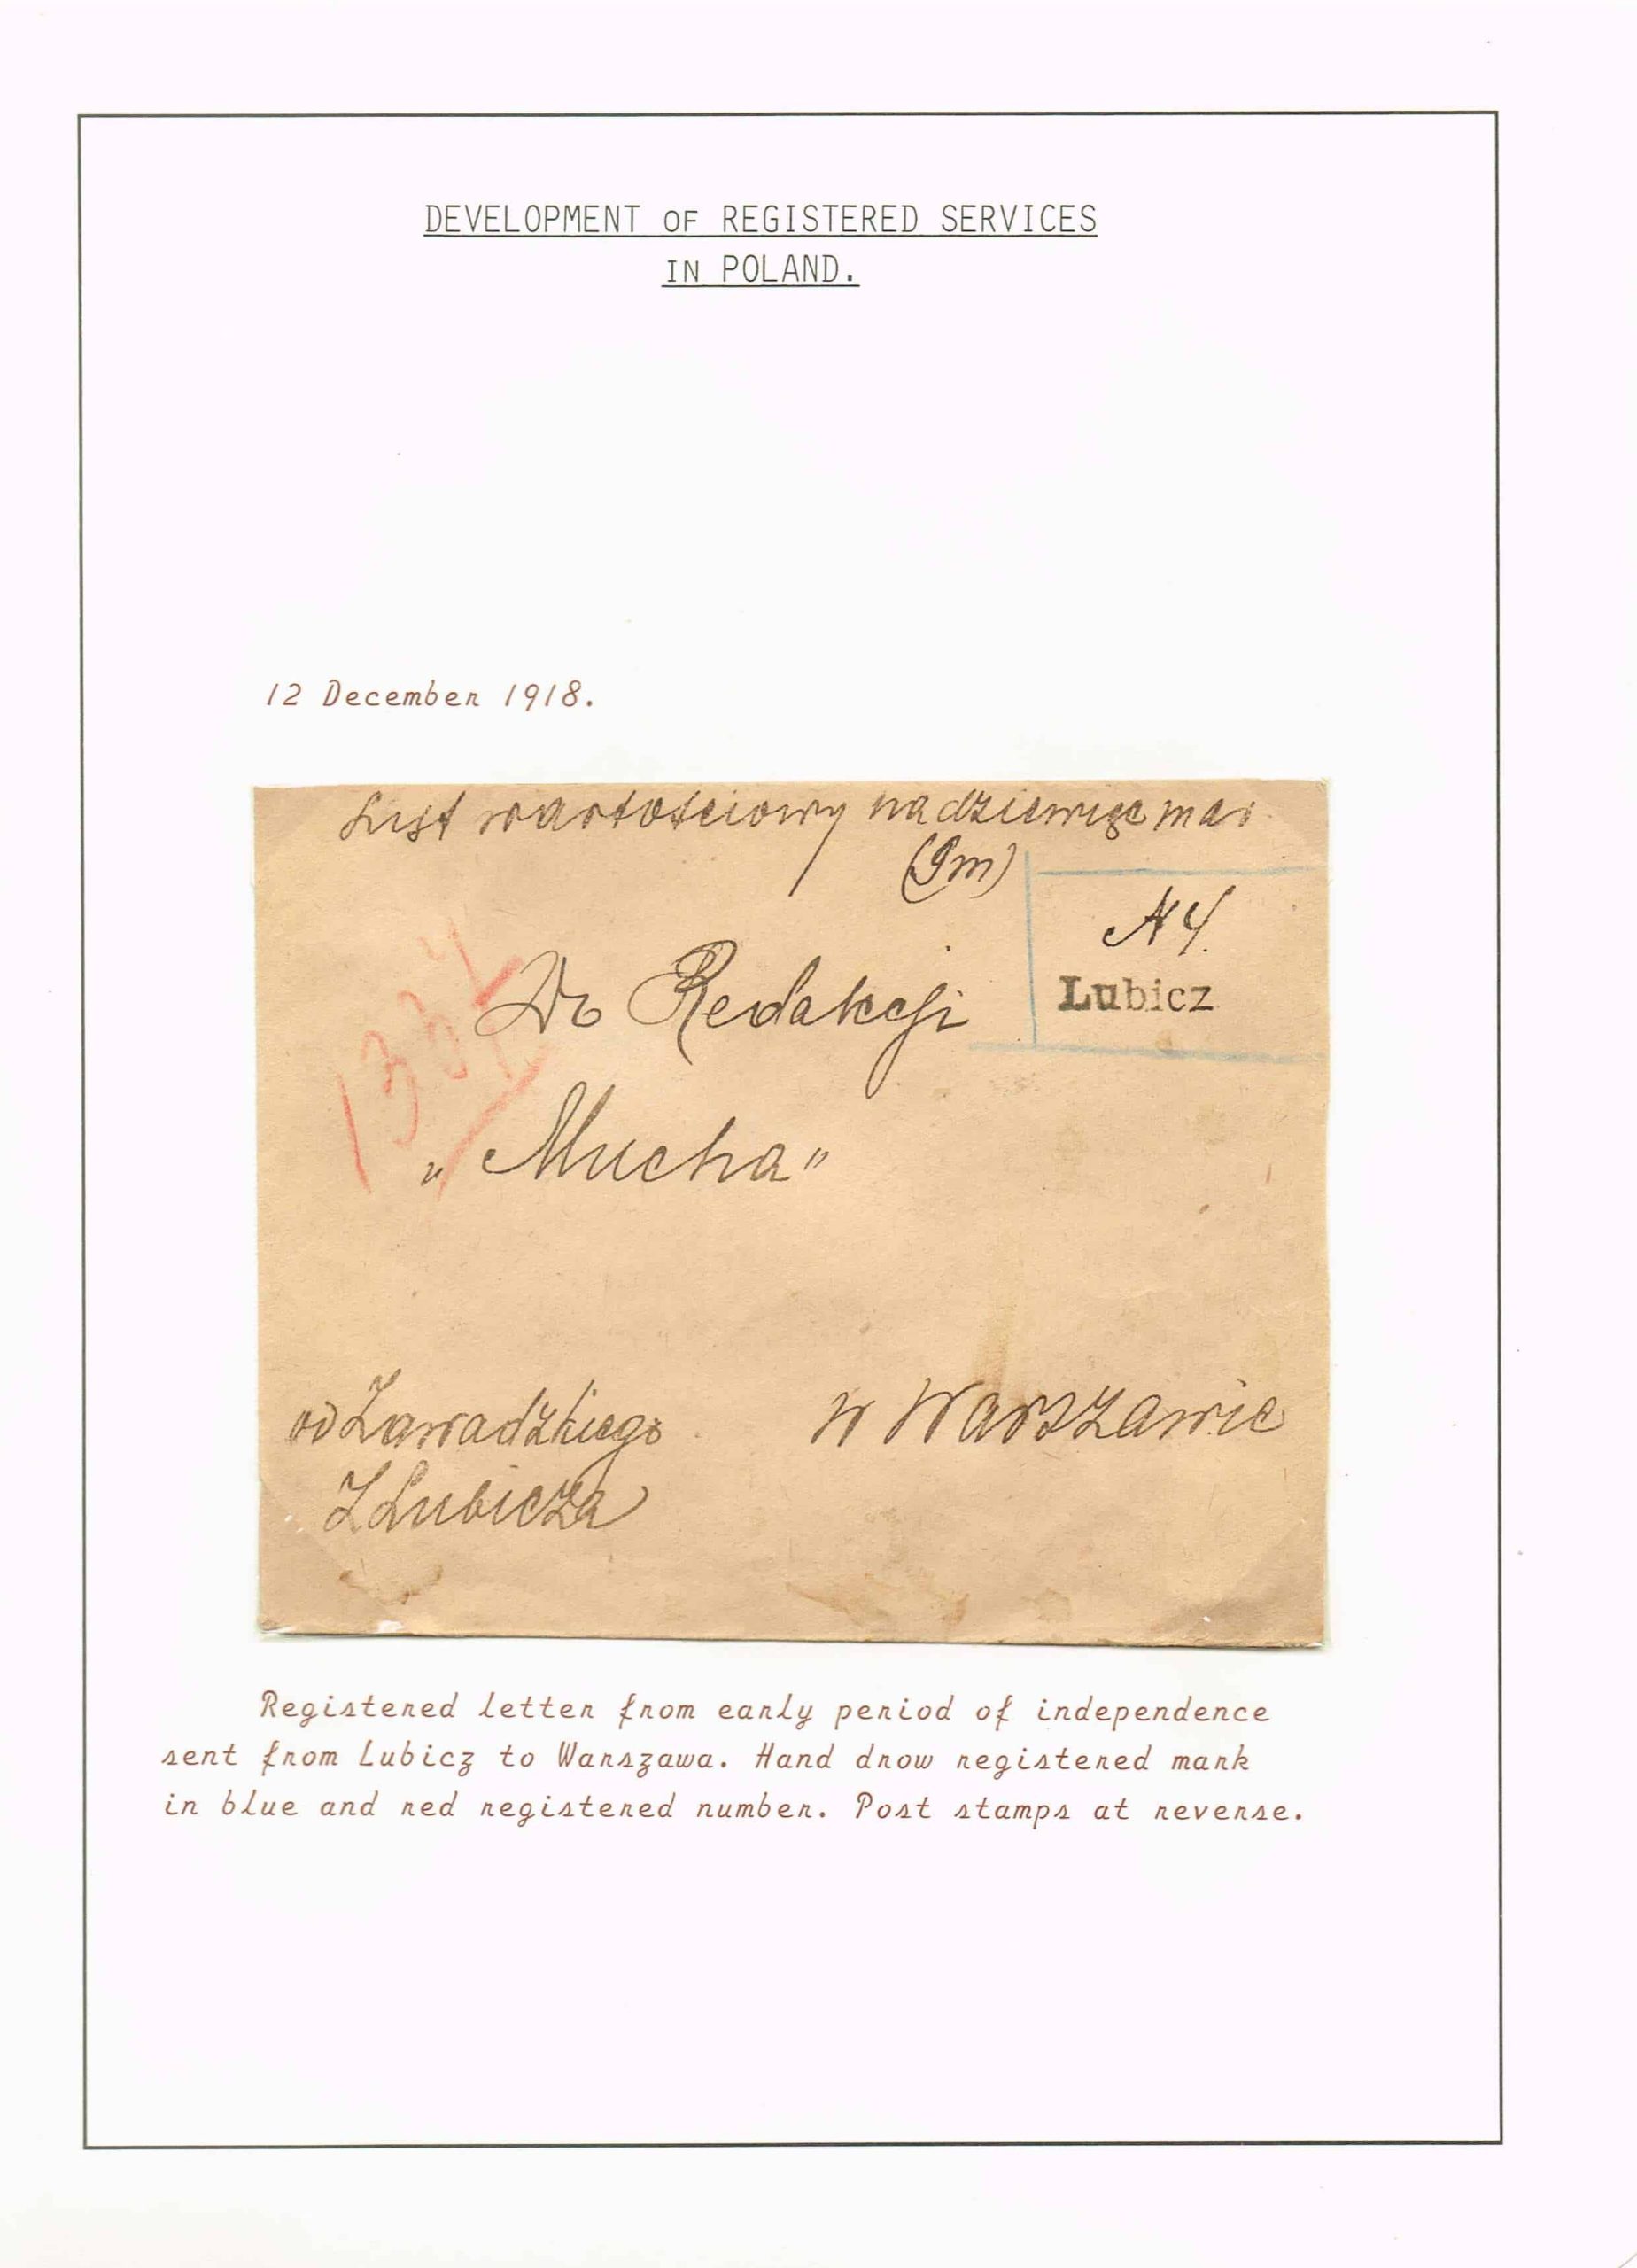 DEVELOPMENT OF REGISTERED SERVICES
IN POLAND.
12 December 1918.
List wartościowy na dziewięć mar
(9m)
N 4.
Lubicz
Do Redakcji
„Mucha"
od Zawadzkiego
w Warszawie
Z Lubicza
Registered letter from early period of independence
sent from Lubicz to Warszawa. Hand drow registered mark
in blue and red registered number. Post stamps at reverse.